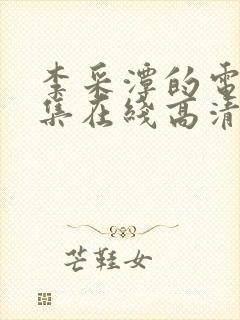 李采潭的電
集在綫高清
芒鞋女